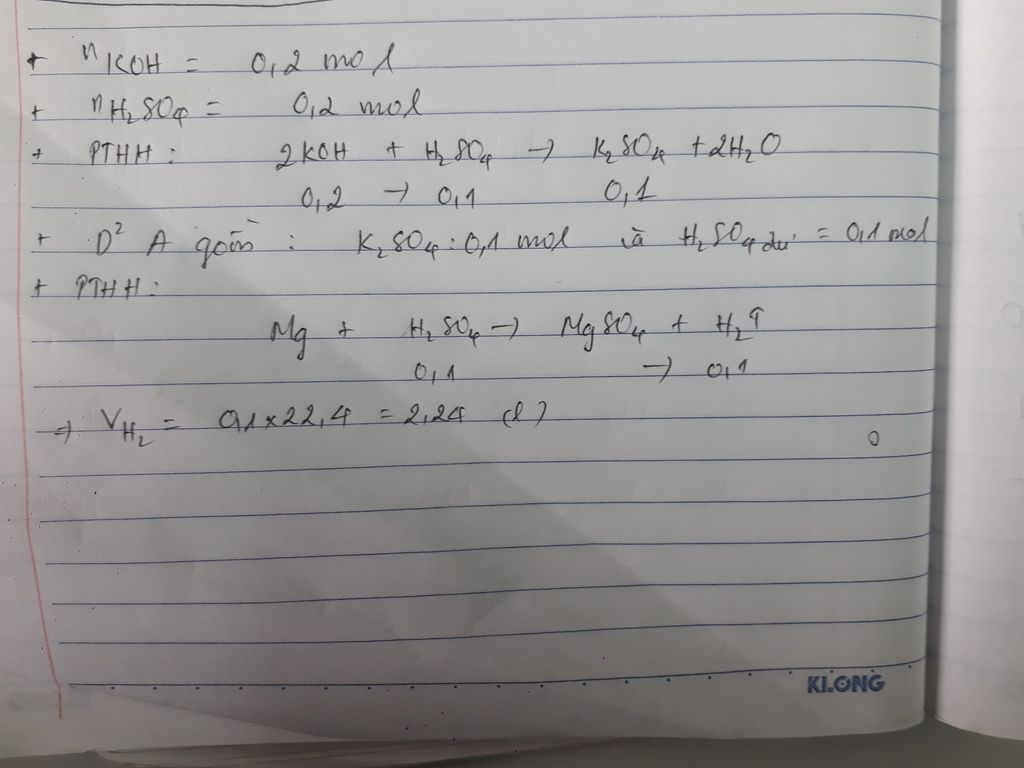 + nKOH = 0,2 mol
+ nH₂SO₄ = 0,2 mol
+ PTHH: 2KOH + H₂SO₄ → K₂SO₄ + 2H₂O
0,2 → 0,1 0,1
+ D² A gồm: K₂SO₄: 0,1 mol và H₂SO₄ dư = 0,1 mol
+ PTHH:
Mg + H₂SO₄ → MgSO₄ + H₂↑
0,1 → 0,1
⇒ VH₂ = 0,1 × 22,4 = 2,24 (l)
KLONG